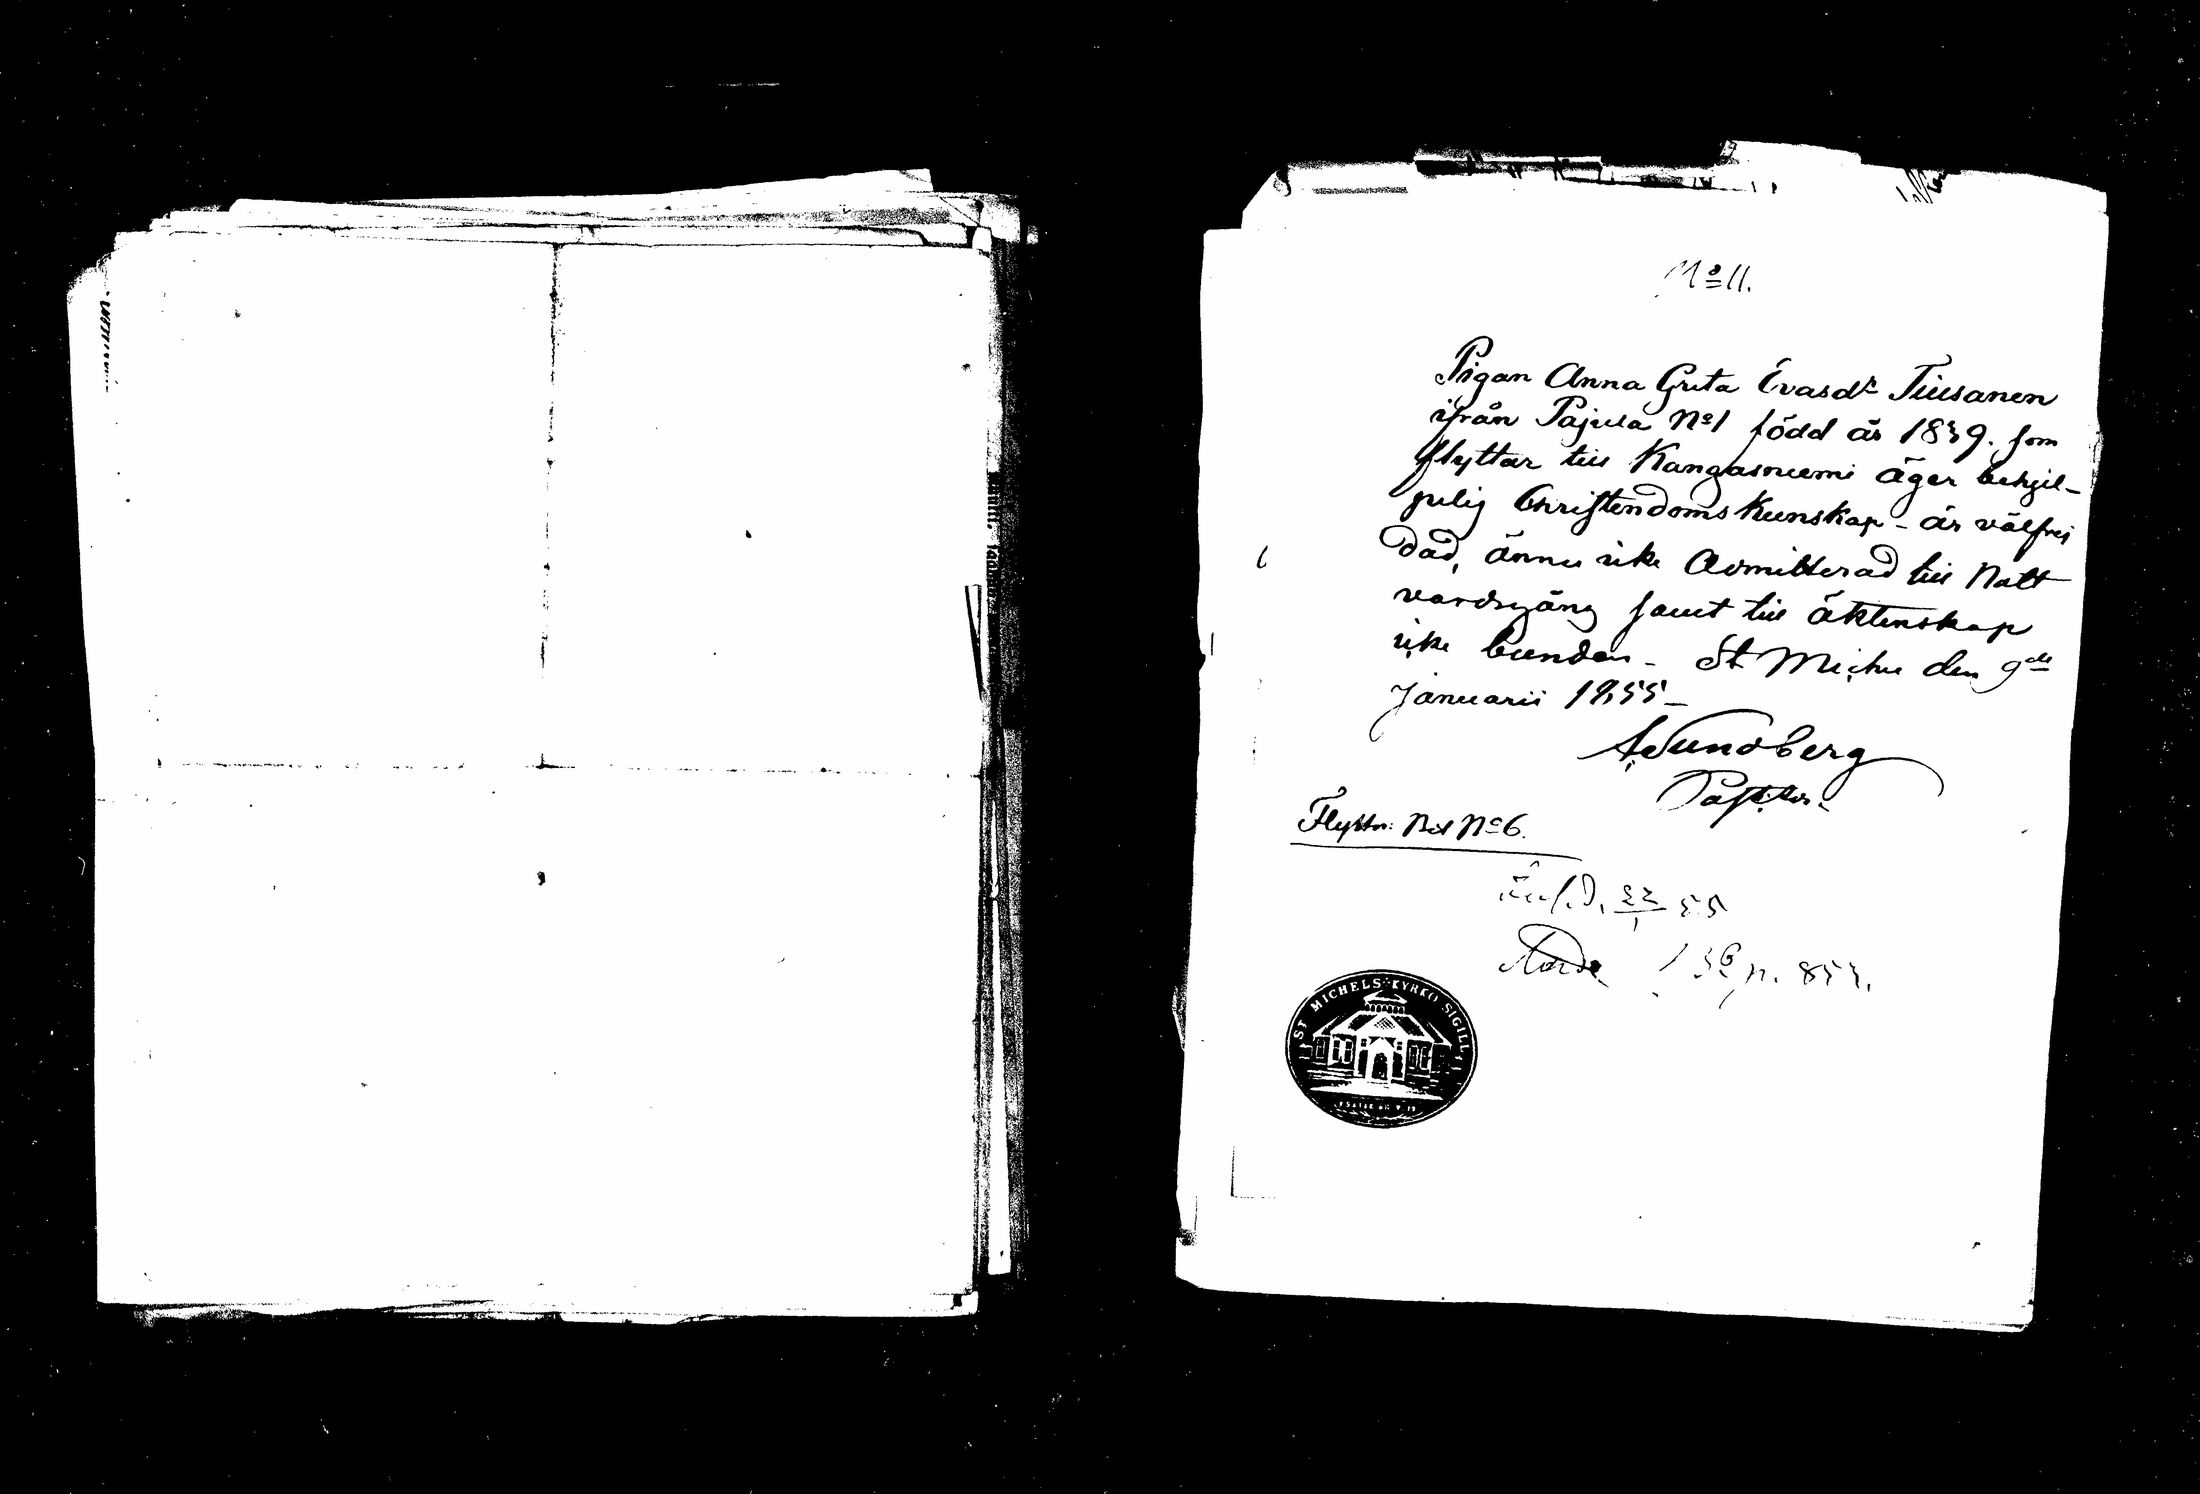 No 11.
Pigan Anna Greta Evasdr Tiusanen
ifrån Pajula No 1 född år 1839. som
flyttar till Kangasniemi äger behjel-
pelig Christendoms Kunskap - är välfrej
dad, ännu icke Admitterad till Natt
vardsgång samt till äktenskap
icke bunden - St Michel den 9de
Januarii 1855 -
A Sundberg
Pastor.
Flyttn: Bet No 6.
22/1 55
p. 853.
ST MICHELS KYRKO SIGILL